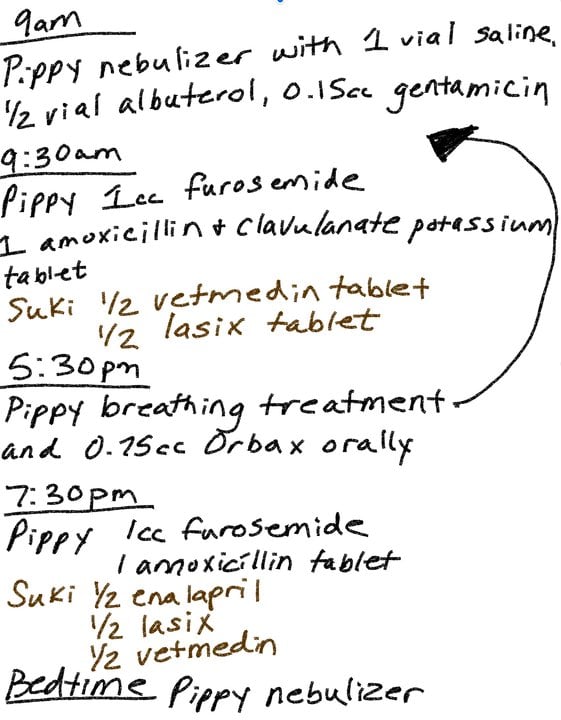 9am
Pippy nebulizer with 1 vial saline,
1/2 vial albuterol, 0.15cc gentamicin
9:30am
Pippy 1cc furosemide
1 amoxicillin + clavulanate potassium
tablet
Suki 1/2 vetmedin tablet
1/2 lasix tablet
5:30pm
Pippy breathing treatment
and 0.75cc Orbax orally
7:30pm
Pippy 1cc furosemide
1 amoxicillin tablet
Suki 1/2 enalapril
1/2 lasix
1/2 vetmedin
Bedtime Pippy nebulizer